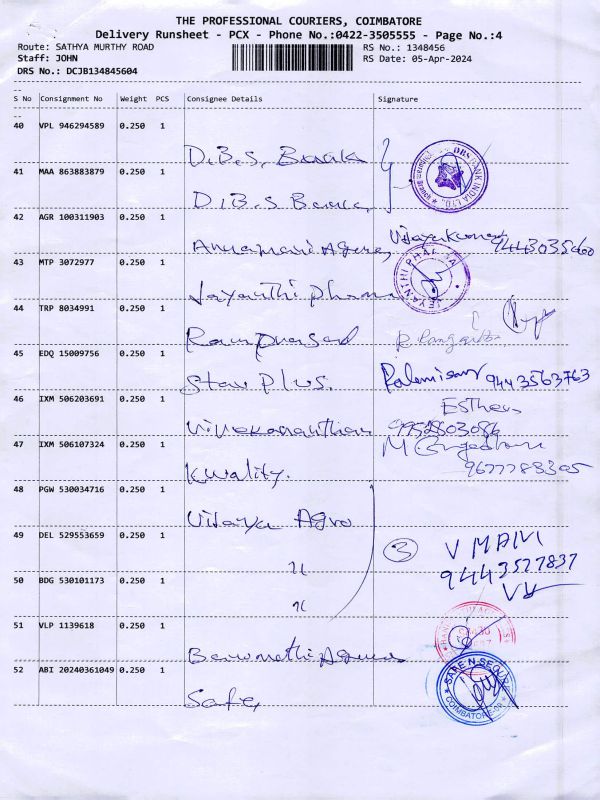 THE PROFESSIONAL COURIERS, COIMBATORE
Delivery Runsheet - PCX - Phone No.:0422-3505555 - Page No.:4
Route: SATHYA MURTHY ROAD
RS No.: 1348456
Staff: JOHN
RS Date: 05-Apr-2024
DRS No.: DCJB134845604
S No Consignment No Weight PCS Consignee Details Signature
40 VPL 946294589 0.250 1
D.B.S. Bank
DBS BANK INDIA LTD.,
41 MAA 863883879 0.250 1
D.B.S Bank
42 AGR 100311903 0.250 1
Annamari Agency Vijayakumar
43 MTP 3072977 0.250 1
Jayanthi pharma
JEYANTHI PHARMA
44 TRP 8034991 0.250 1
Ramprasad
45 EDQ 15009756 0.250 1
Star Plus. Palanisamy 9443563763
46 IXM 506203691 0.250 1
Esther
Vivekananthan
47 IXM 506107324 0.250 1
Kwality. 9677783305
48 PGW 530034716 0.250 1
Vijaya Agro
49 DEL 529553659 0.250 1
3
V MANI
9443527837
50 BDG 530101173 0.250 1
51 VLP 1139618 0.250 1
52 ABI 20240361049 0.250 1
Safe
SAFE N SECURE
COIMBATORE-09